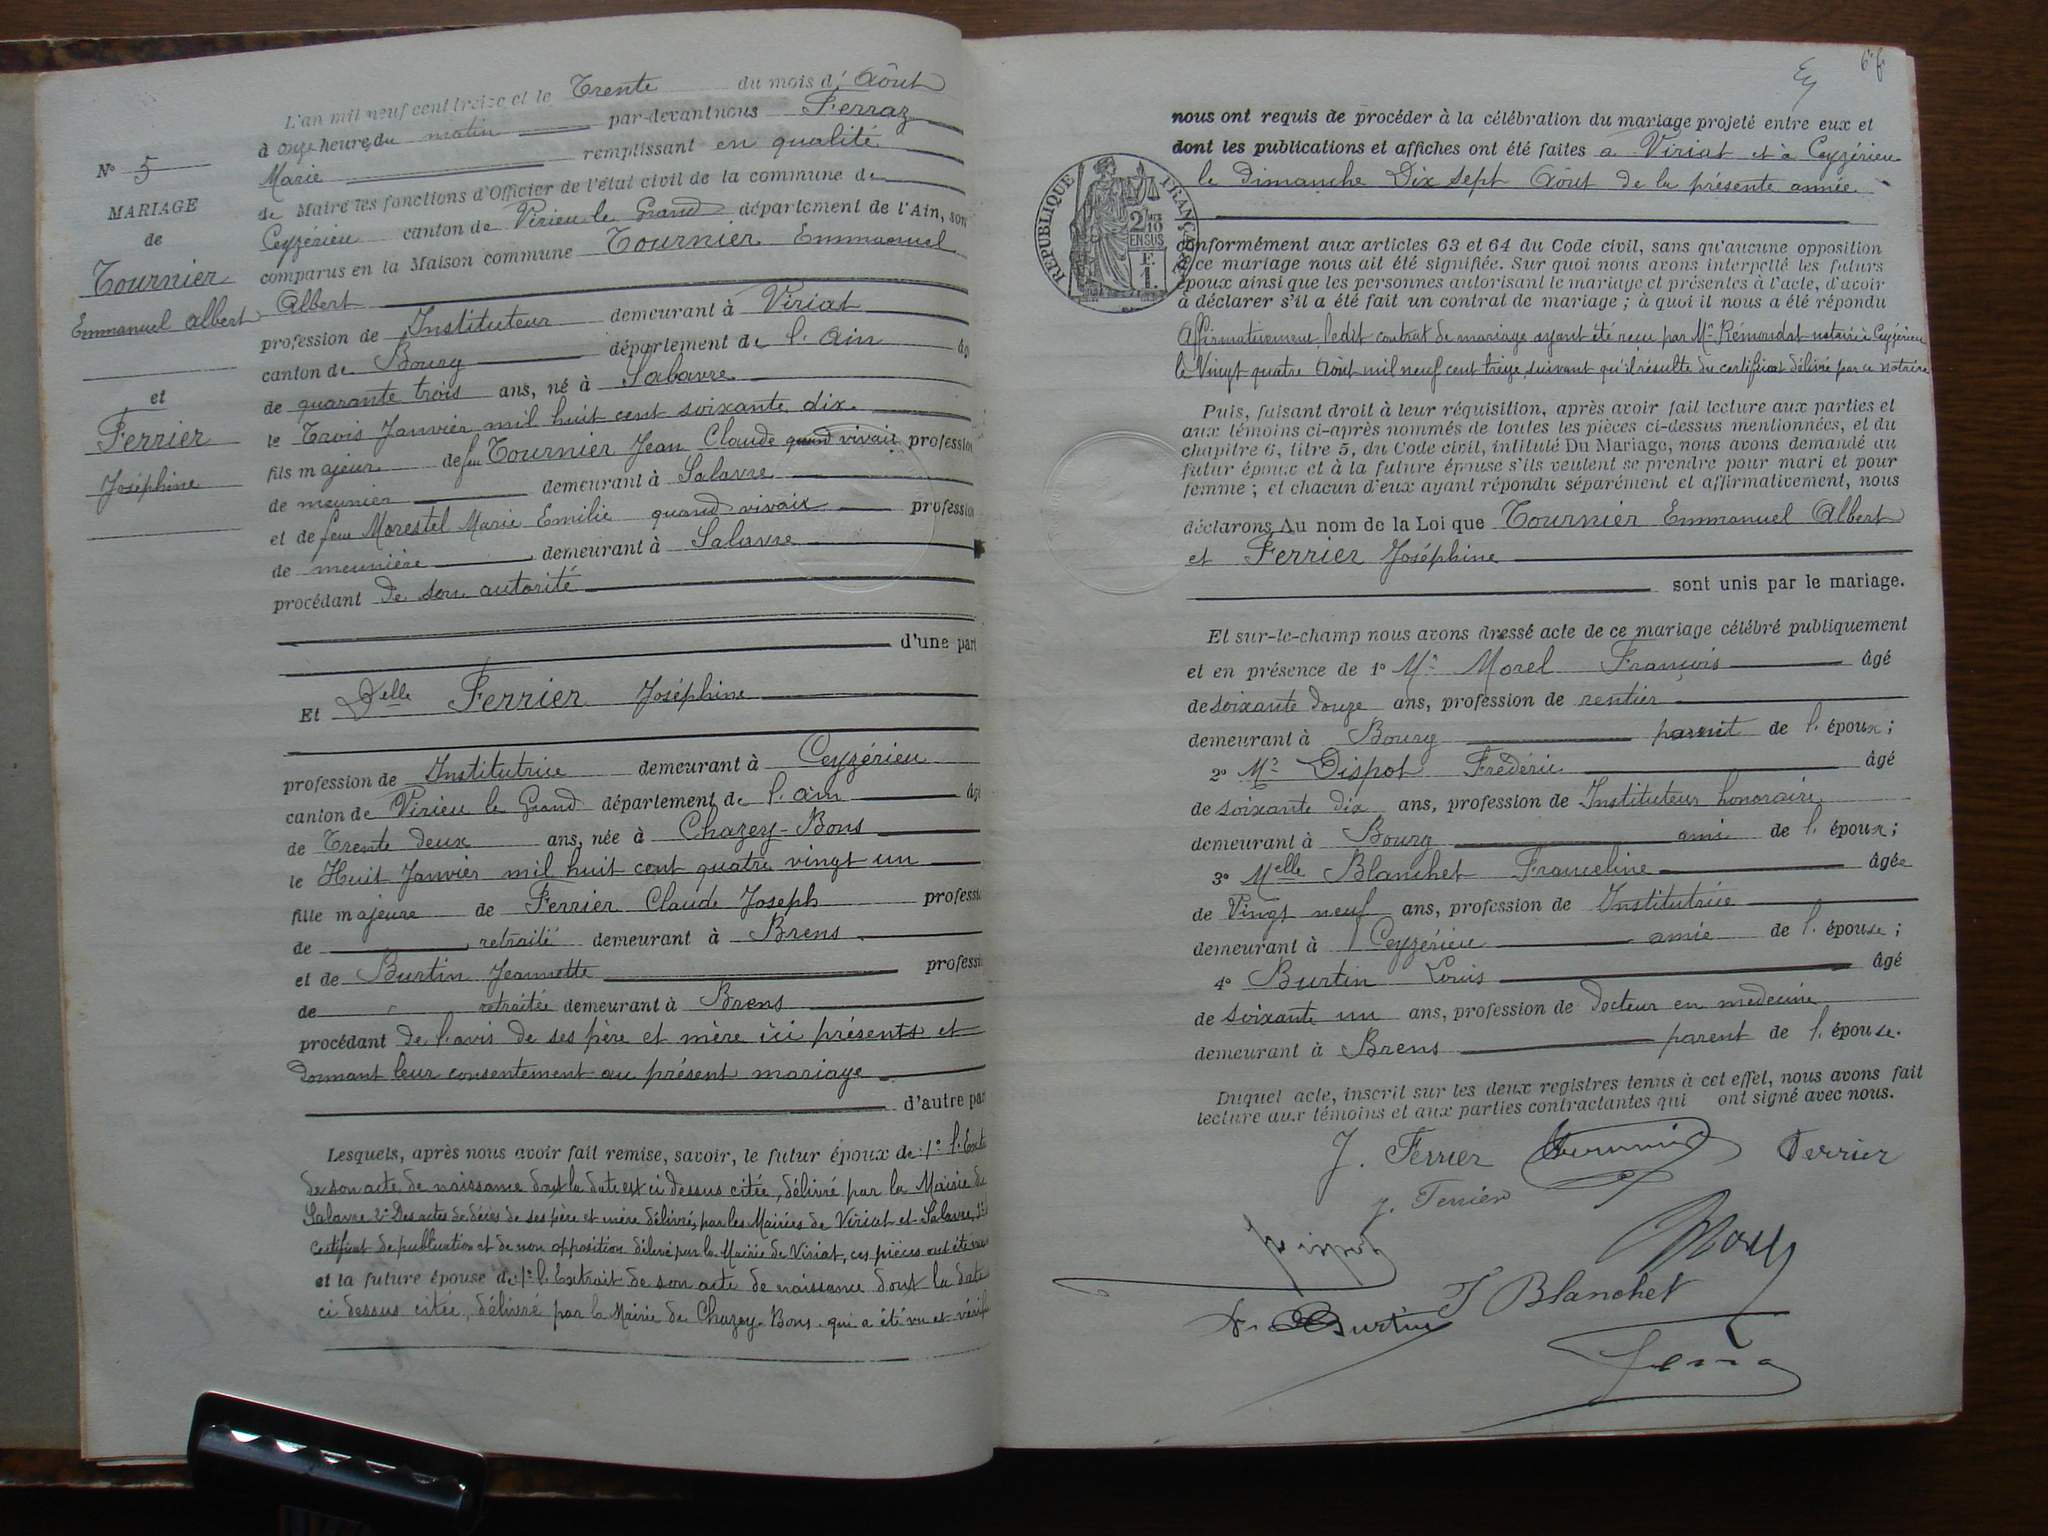 L'an mil neuf cent treize et le Trente du mois d'Août
à onze heure du matin par-devant nous Ferraz
Marie remplissant en qualité
de Maire les fonctions d'Officier de l'état civil de la commune de
Ceyzérieu canton de Virieu le Grand département de l'Ain, son
comparus en la Maison commune Tournier Emmanuel
Albert
profession de Instituteur demeurant à Viriat
canton de Bourg département de l'Ain âg
de quarante trois ans, né à Salavre
le Trois Janvier mil huit cent soixante dix
fils majeur de feu Tournier Jean Claude quand vivait profession
de meunier demeurant à Salavre
et de feue Morestel Marie Emilie quand vivait profession
de meunière demeurant à Salavre
procédant de son autorité
d'une part
N° 5
MARIAGE
de
Tournier
Emmanuel Albert
et
Ferrier
Joséphine
Et Delle Ferrier Joséphine
profession de Institutrice demeurant à Ceyzérieu
canton de Virieu le Grand département de l'Ain âgé
de Trente deux ans, née à Chazey-Bons
le Huit Janvier mil huit cent quatre vingt un
fille majeure de Ferrier Claude Joseph professi
de retraité demeurant à Brens
et de Burtin Jeannette professi
de retraitée demeurant à Brens
procédant de l'avis de ses père et mère ici présents et
donnant leur consentement au présent mariage
d'autre par
Lesquels, après nous avoir fait remise, savoir, le futur époux de: 1° l'Extr
de son acte de naissance dont la date est ci dessus citée, délivré par la Mairie de
Salavre 2° Des actes de décès de ses père et mère délivrés par les Mairies de Viriat et Salavre, 3°
certificat de publication et de non opposition délivré par la Mairie de Viriat, ces pièces ont été vues
et la future épouse de: 1° l'Extrait de son acte de naissance dont la date
ci dessus citée, délivré par la Mairie de Chazey-Bons qui a été vu et vérifi
nous ont requis de procéder à la célébration du mariage projeté entre eux et
dont les publications et affiches ont été faites a Viriat et à Ceyzérieu
le dimanche Dix sept Août de la présente année
RÉPUBLIQUE FRANÇAISE
2/10
EN SUS
F.
1.
conformément aux articles 63 et 64 du Code civil, sans qu'aucune opposition
à ce mariage nous ait été signifiée. Sur quoi nous avons interpellé les futurs
époux ainsi que les personnes autorisant le mariage et présentes à l'acte, d'avoir
à déclarer s'il a été fait un contrat de mariage ; à quoi il nous a été répondu
Affirmativement, ledit contrat de mariage ayant été reçu par Me Rémondat notaire à Ceyzérieu
le Vingt quatre Août mil neuf cent treize, suivant qu'il résulte du certificat délivré par ce notaire
Puis, faisant droit à leur réquisition, après avoir fait lecture aux parties et
aux témoins ci-après nommés de toutes les pièces ci-dessus mentionnées, et du
chapitre 6, titre 5, du Code civil, intitulé Du Mariage, nous avons demandé au
futur époux et à la future épouse s'ils veulent se prendre pour mari et pour
femme ; et chacun d'eux ayant répondu séparément et affirmativement, nous
déclarons Au nom de la Loi que Tournier Emmanuel Albert
et Ferrier Joséphine
sont unis par le mariage.
Et sur-le-champ nous avons dressé acte de ce mariage célébré publiquement
et en présence de 1° Mr Morel François âgé
de soixante douze ans, profession de rentier
demeurant à Bourg parent de l'époux ;
2° Mr Dispot Frédéric âgé
de soixante dix ans, profession de Instituteur honoraire
demeurant à Bourg ami de l'époux ;
3° Melle Blanchet Franceline âgée
de Vingt neuf ans, profession de Institutrice
demeurant à Ceyzérieu amie de l'épouse ;
4° Burtin Louis âgé
de soixante un ans, profession de docteur en medecine
demeurant à Brens parent de l'épouse.
Duquel acte, inscrit sur les deux registres tenus à cet effet, nous avons fait
lecture aux témoins et aux parties contractantes qui ont signé avec nous.
J. Ferrier Tournier Ferrier
J. Ferrier
Dispot Morel
F Blanchet
Dr Burtin
Ferraz